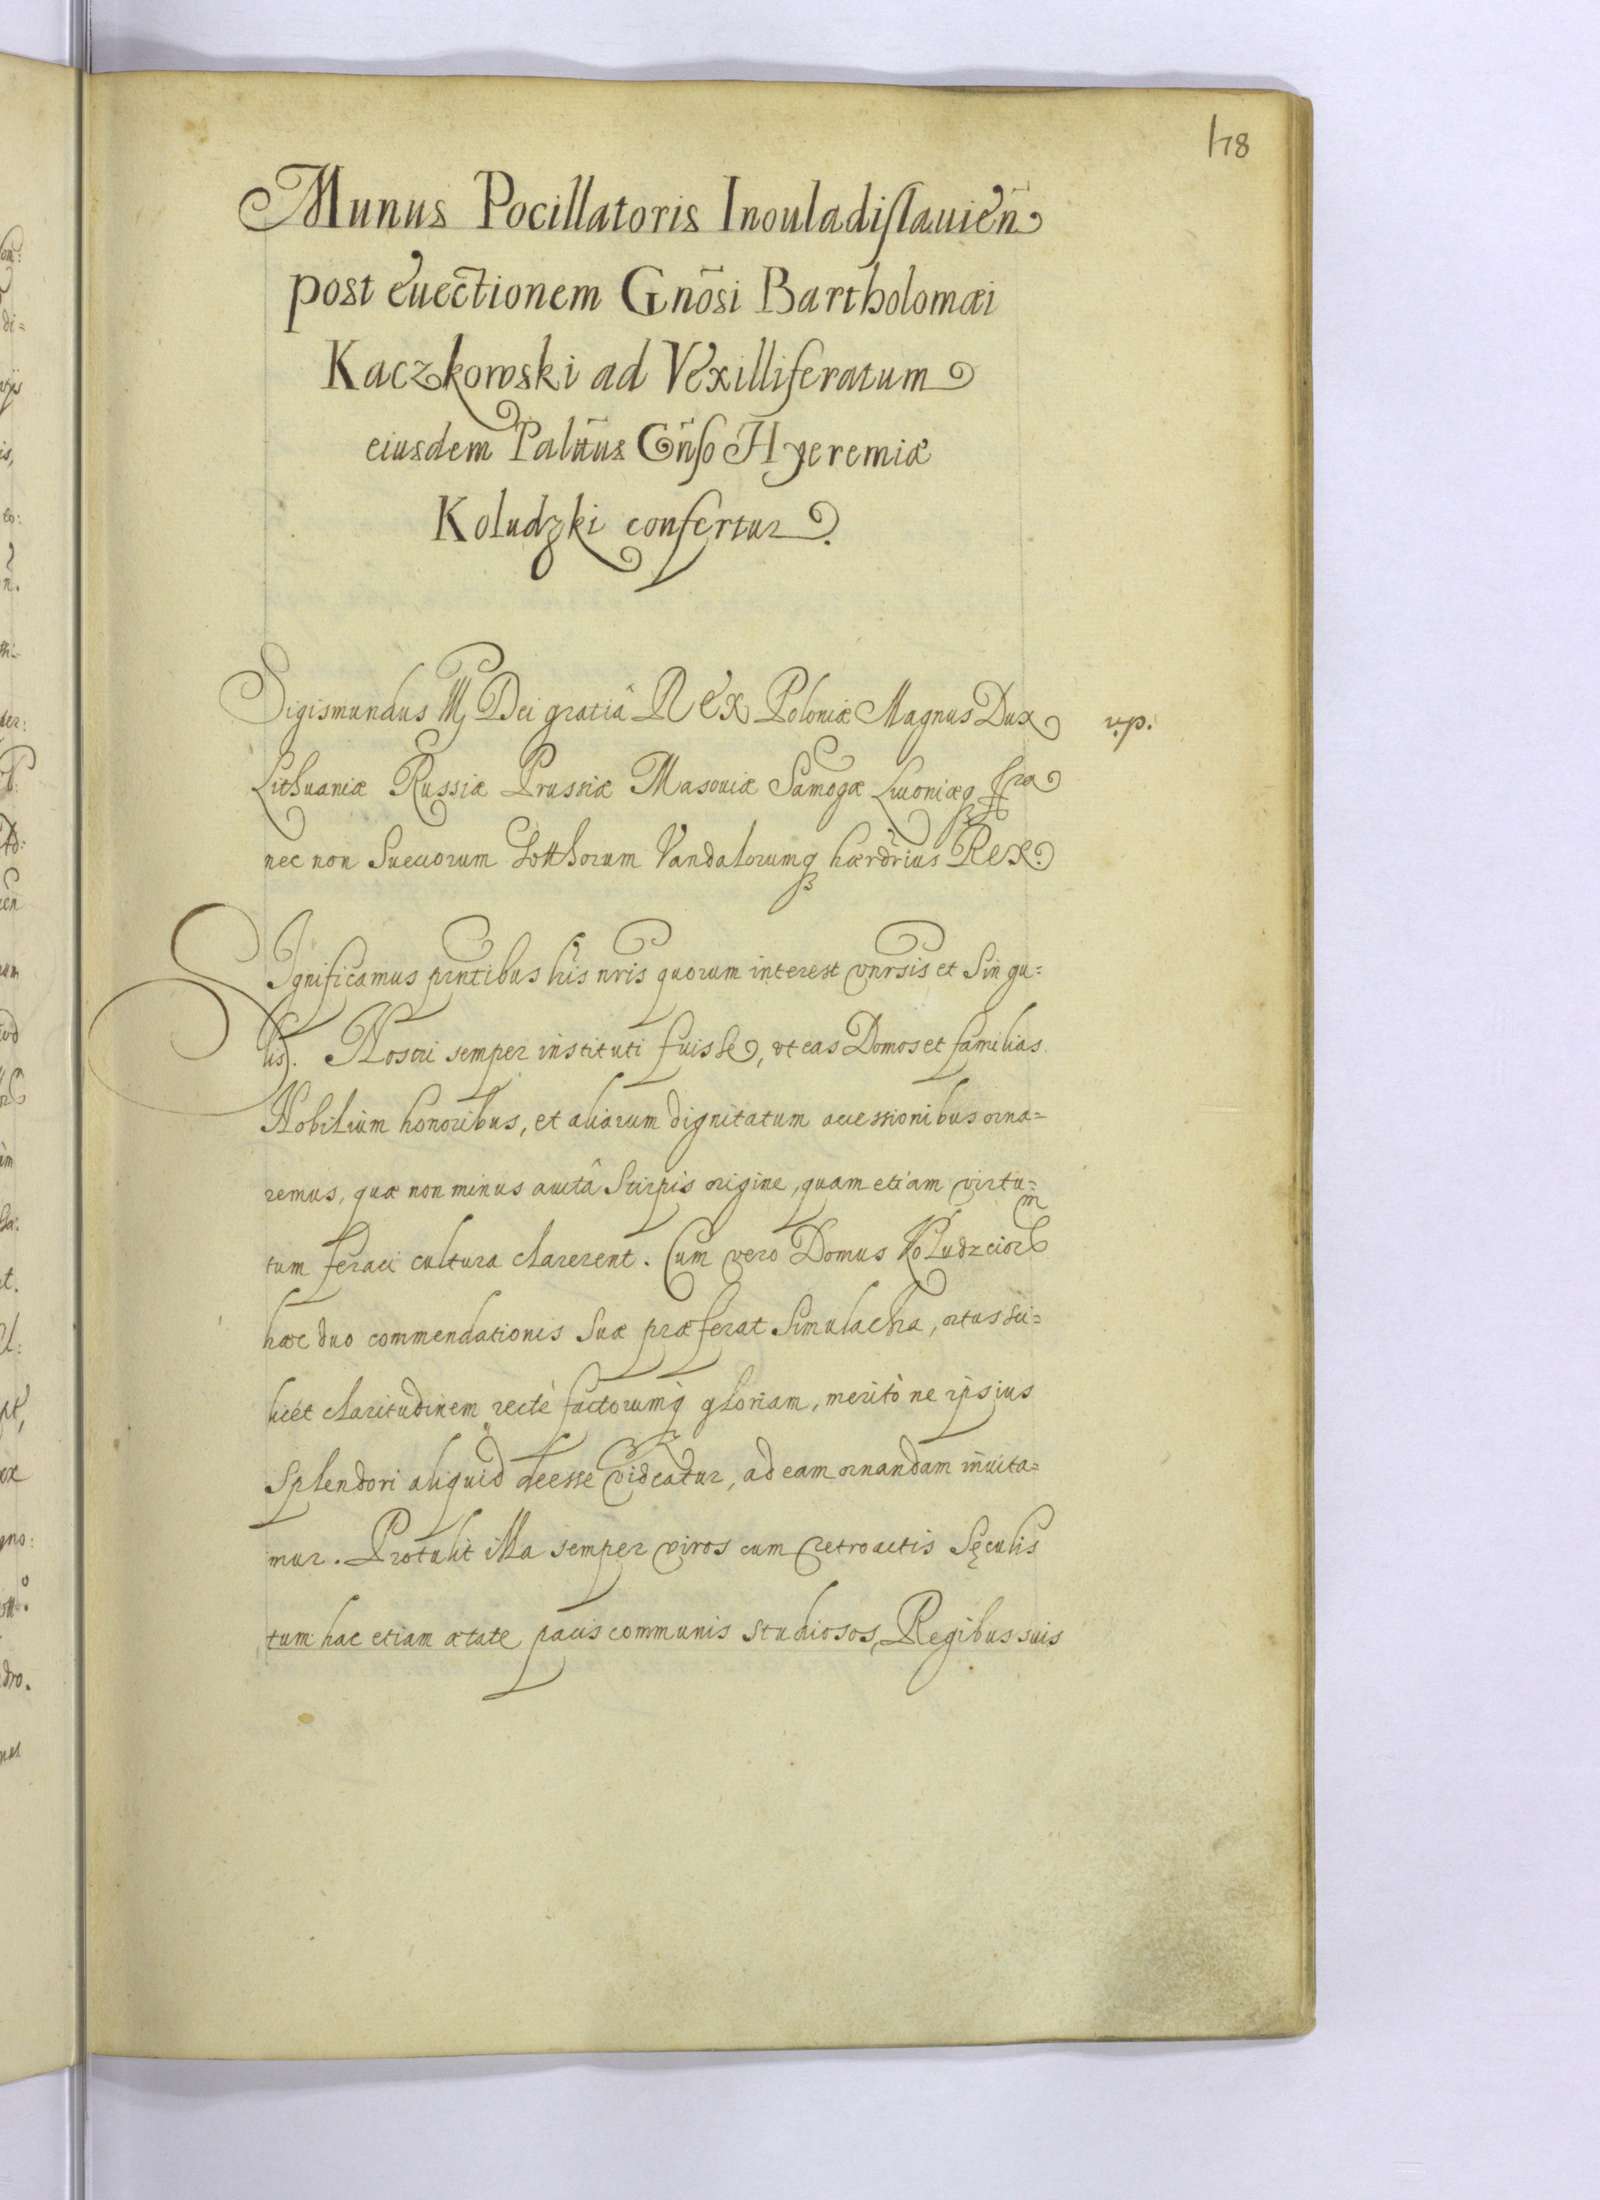 178
Munus Pocillatoris Inouladislauien̄
post euectionem Gnōsi Bartholomæi
Kaczkowski ad Vexilliferatum
eiusdem Palt̄tus Gn̄so Hyeremiæ
Koludzki confertur.
Sigismundus III Dei gratiâ Rex Poloniæ Magnus Dux
Lithuaniæ Russiæ Prussiæ Masouiæ Samogæ Liuoniæq
nec non Sueuorum Gotthorum Vandalorumq hærdrius Rex.
SIgnificamus prntibus hīs nris quorum interest vnrsis et singu=
lis). Nostri semper instituti fuisse, vt eas Domos et familias
Nobilium honoribus, et aliarum dignitatum accessionibus orna=
remus, quæ non minus auitâ Stirpis origine, quam etiam virtu=
tum feraci cultura clarerent. Cum vero Domus Koludzciorum
hæc duo commendationis suæ præferat Simulachra, ortus sci=
licet claritudinem rectè factorumq́ gloriam, meritò ne ipsius
Splendori aliquid deesse videatur, ad eam ornandam inuita=
mur. Protulit illa semper viros cum retroactis Sęculis
tum hac etiam ætate pacis communis studiosos, Regibus suis